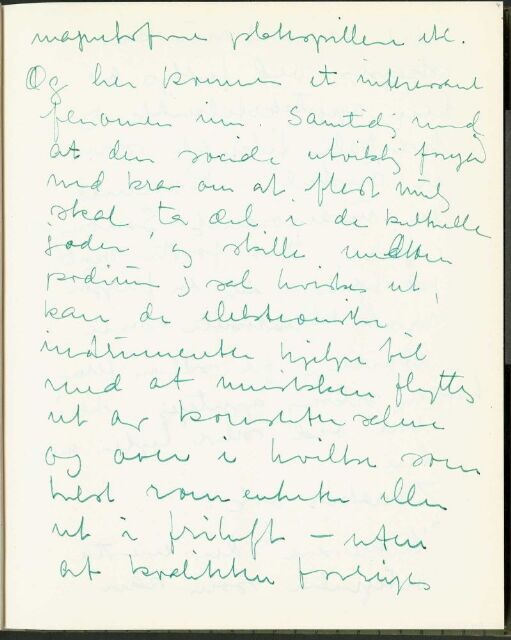 magnetofone platespillere etc.
Og her kommer et interessant
fenomen inn Samtidig med
at den sosiale utvikling foregår
med krav om at flest mulig
skal ta del i de kulturelle
goder, og skille mellom
podium og sal hviskes ut,
kan de elektroniske
instrumenter hjelpe til
med at musikken flyttes
ut av konsertsalene
og over i hvilke som
helst rom enkelte eller
ut i friluft – uten
at kvalitéten forringes